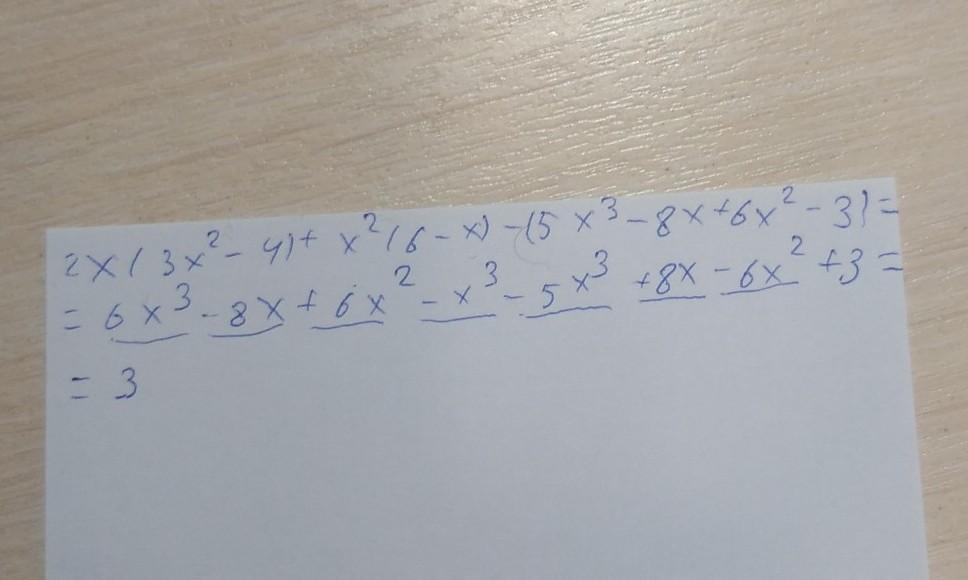 2x(3x² - 4) + x²(6 - x) - (5x³ - 8x + 6x² - 3) =
= 6x³ - 8x + 6x² - x³ - 5x³ + 8x - 6x² + 3 =
= 3